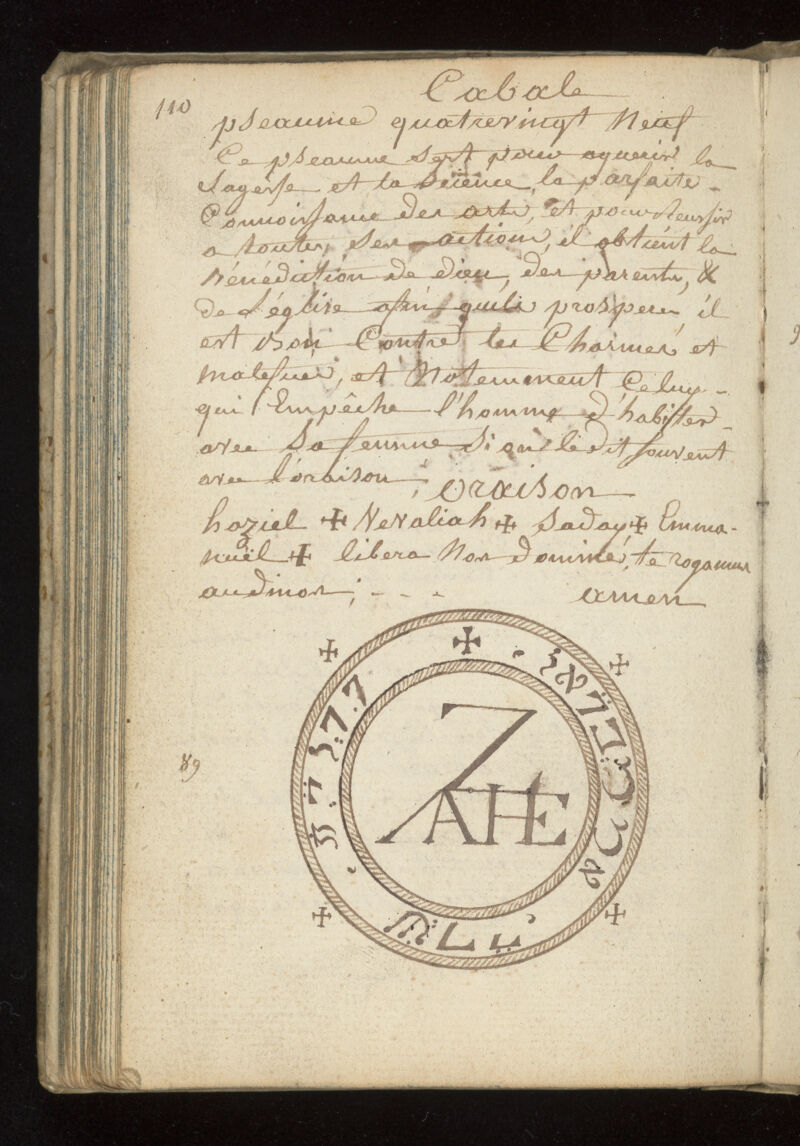 110
Cabale
pseaume quatrevingt neuf
Ce pseaume sert pour aquerir la
sagesse et la science, la parfaite
Connoissance des arts, et pour reussir
a toutes, ses actions, il obtient la
bénédiction de dieu, des parents, &
de l'église afin quils prospere il
est bon Contre les Charmes et
malefices, et Notemment Celuy
qui Empêche l'homme d'habitter
avec sa femme si on le dit souvent
avec l'oraison;
Oraison
haziel + Nenaliah + saday + Emma-
nuël + libera Nos dominé, te rogamus
audinos; - - -
amen
89
ZAHE